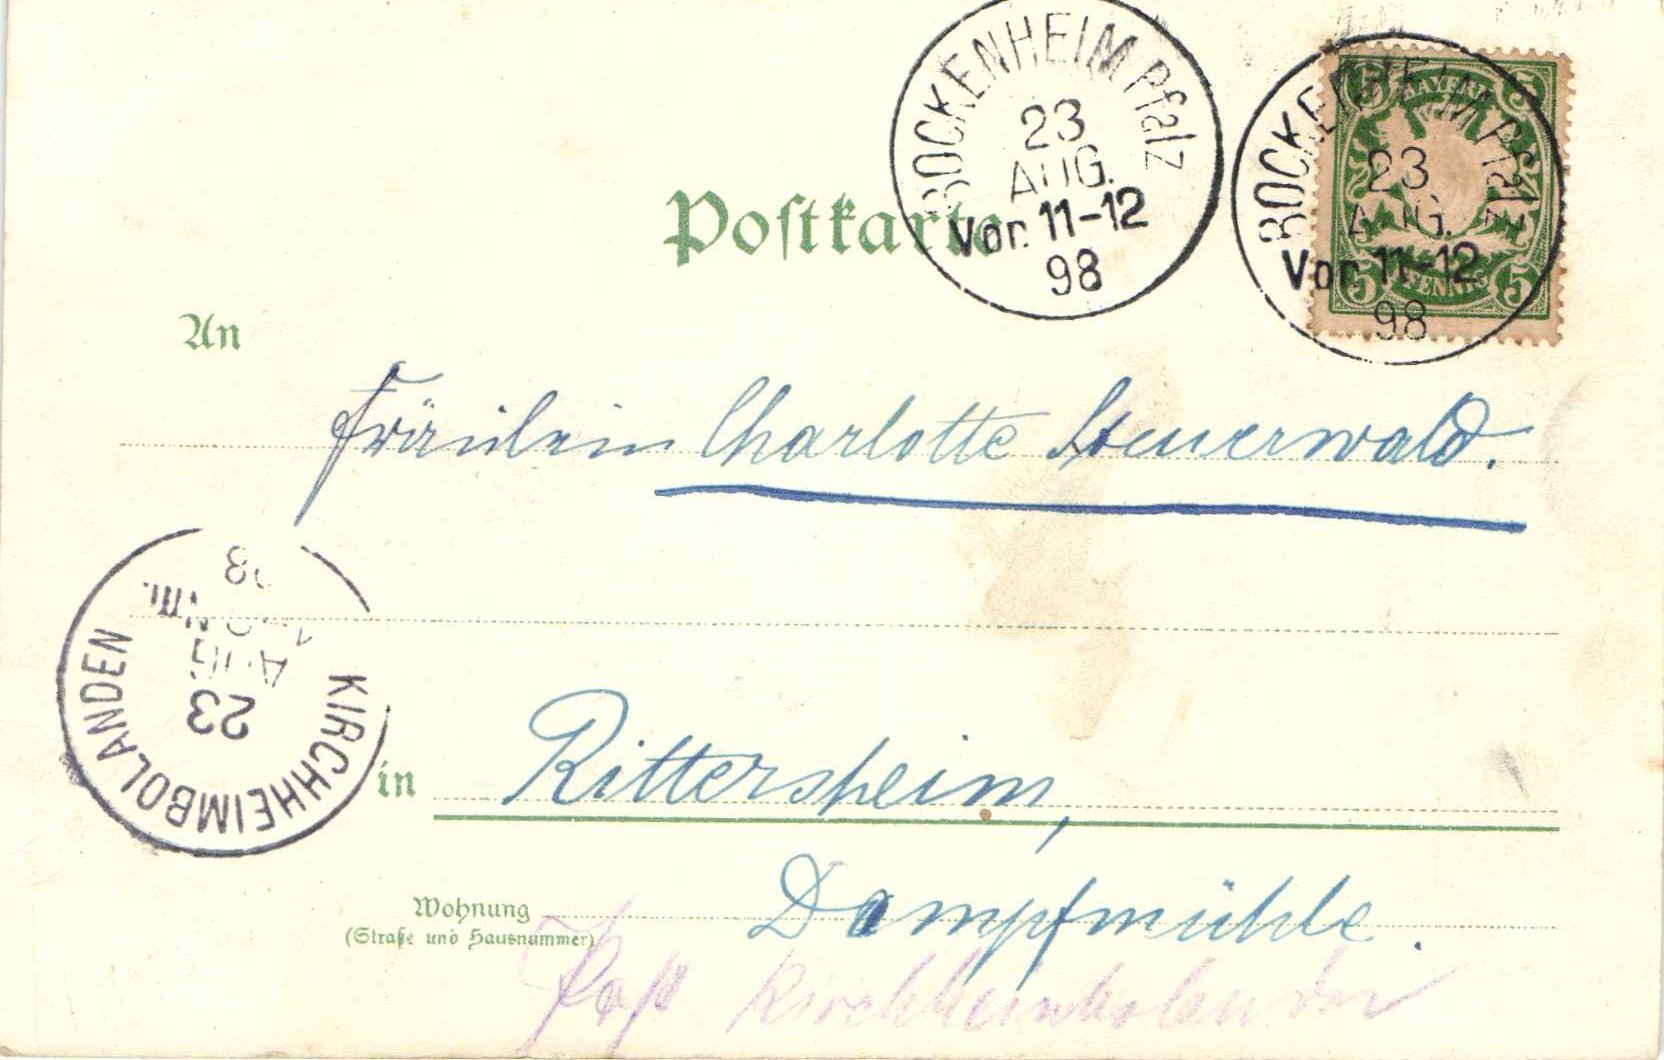 BOCKENHEIM Pfalz
23
AUG.
Vor. 11-12
98
BOCKENHEIM Pfalz
23
AUG.
Vor. 11-12
98
5 BAYERN 5
5 PFENNIG 5
Postkarte
An
Fräulein Charlotte Steuerwald.
KIRCHHEIMBOLANDEN
23
AUG
Nm.
98
in Rittersheim,
Wohnung
(Straße und Hausnummer)
Dampfmühle.
Post Kirchheimbolanden